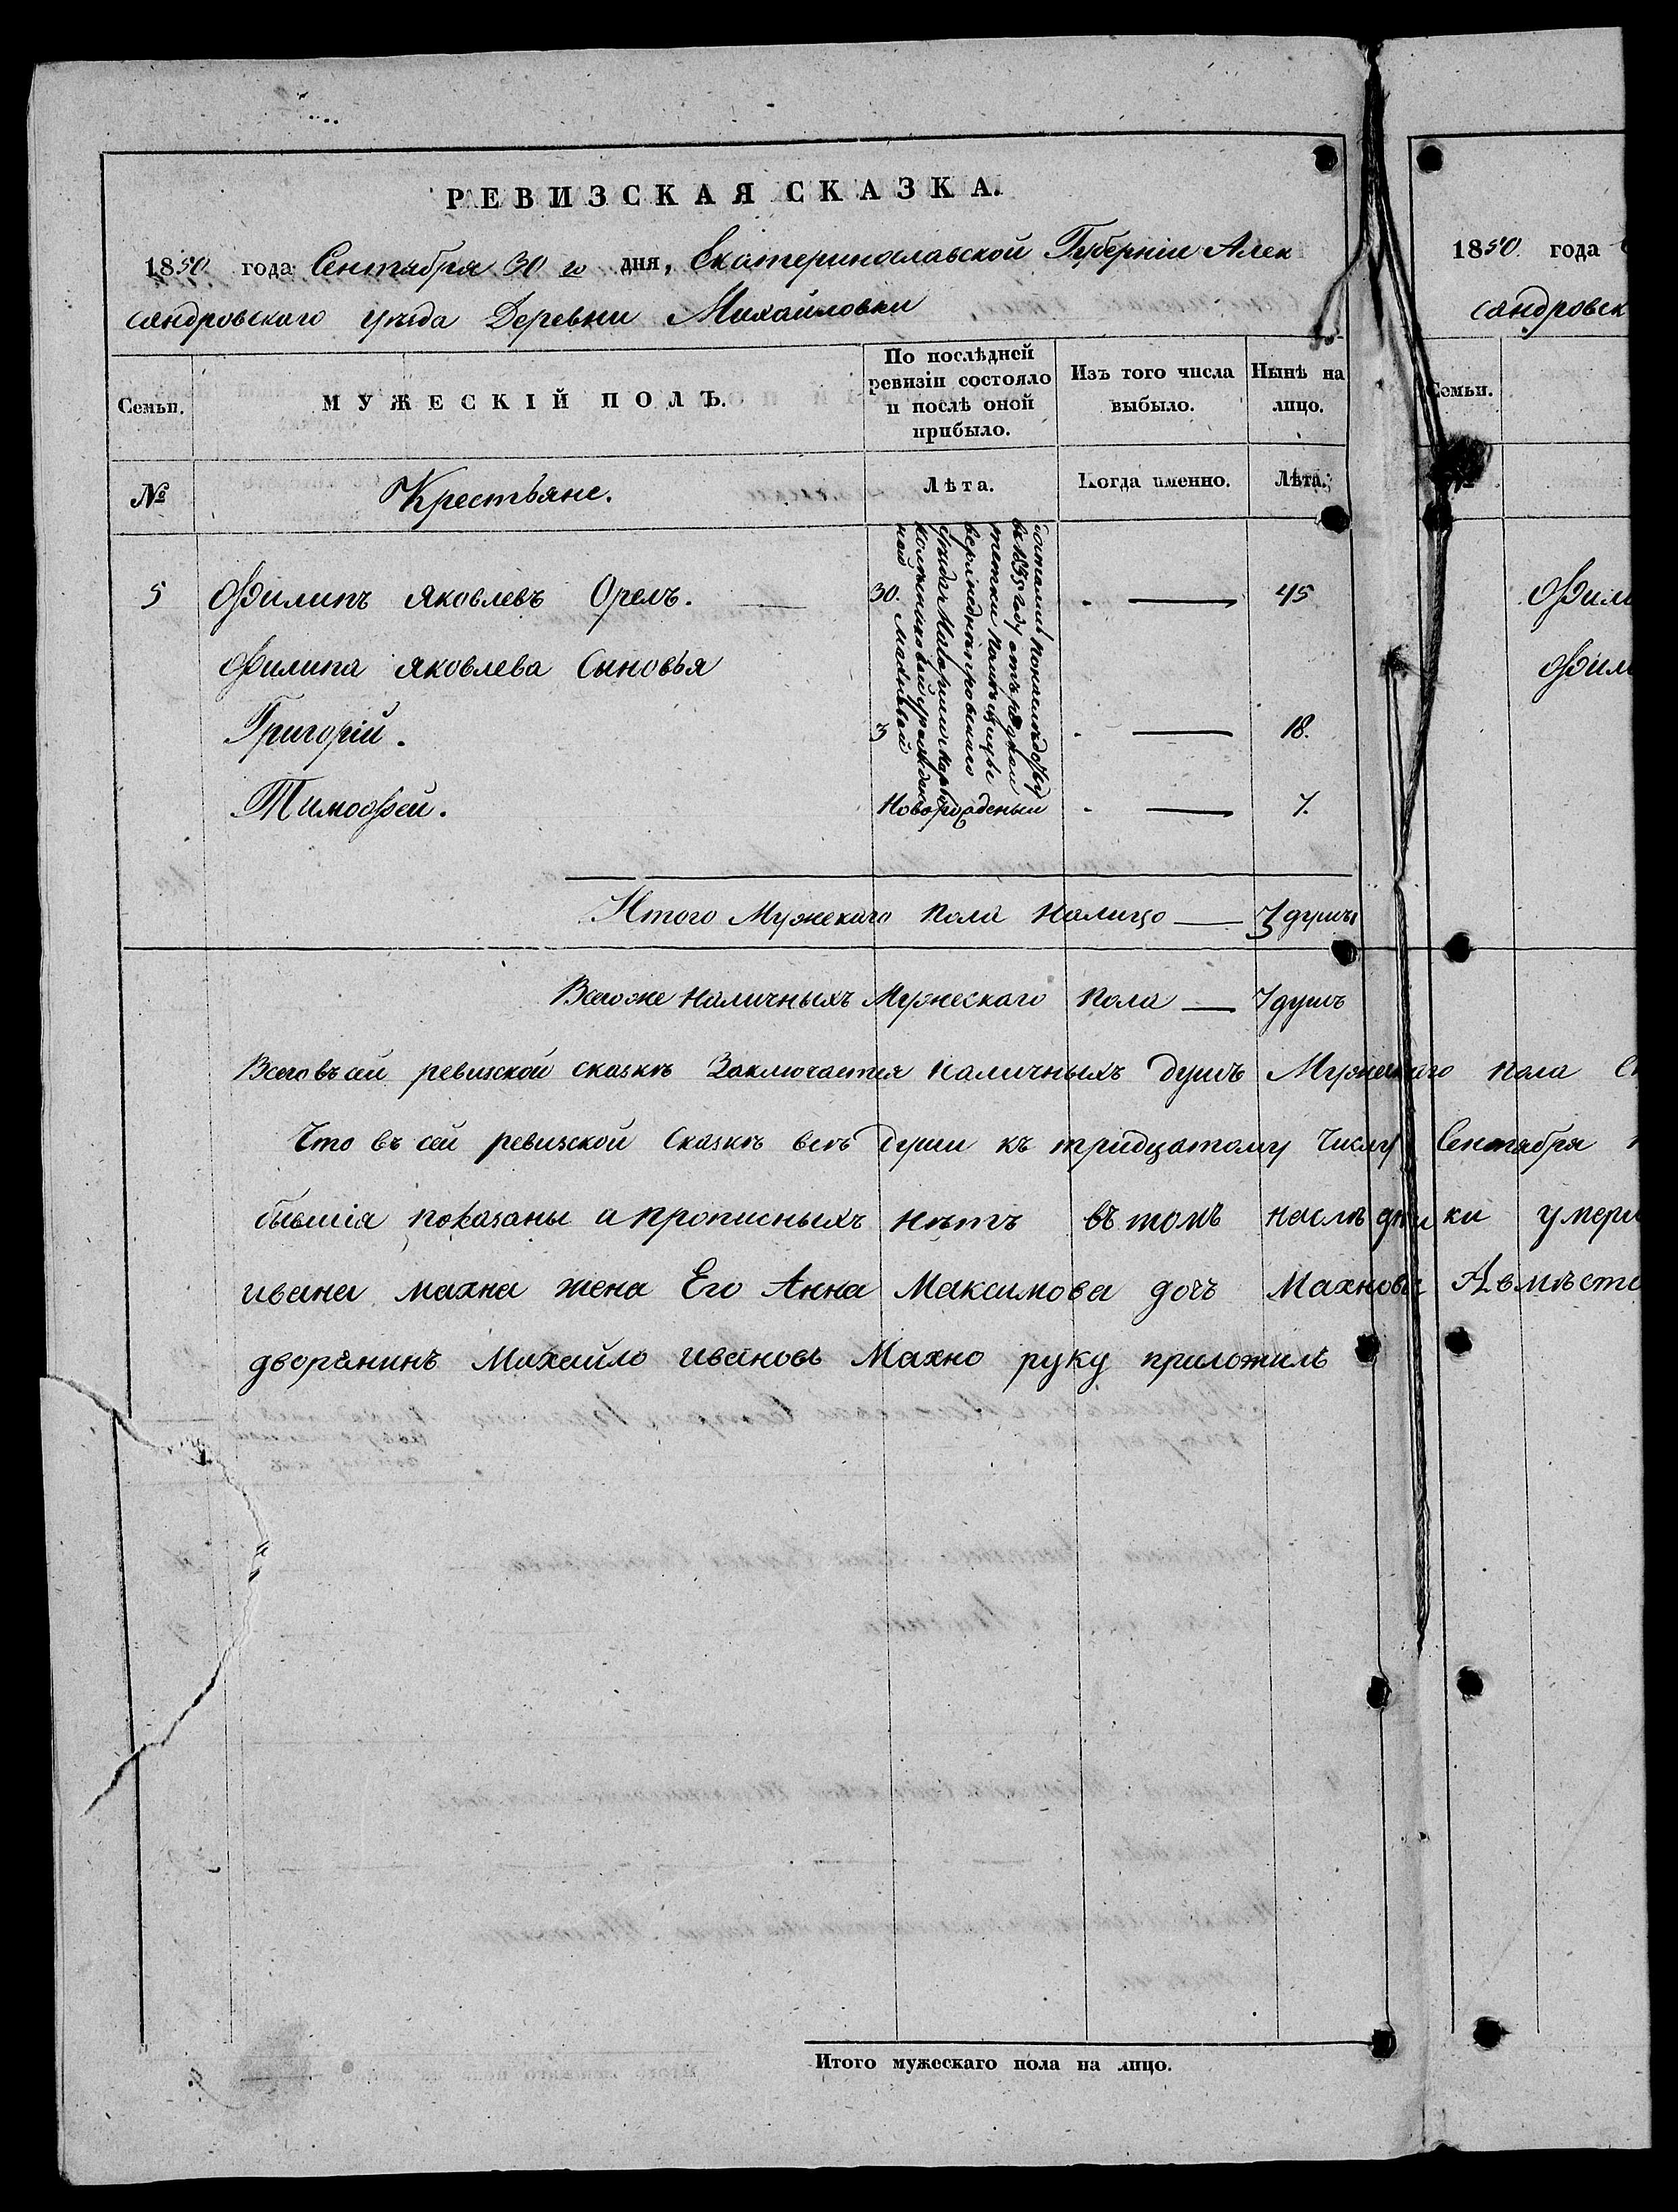 РЕВИЗСКАЯ СКАЗКА.
1850 года Сентября 30 го дня, Екатеринославской Губерніи Алек
сандровскаго уѣзда Деревни Михайловки
Семьи.
МУЖЕСКІЙ ПОЛЪ.
По послѣдней
ревизіи состояло
и послѣ оной
прибыло.
Изъ того числа
выбыло.
Нынѣ на
лицо.
№
Крестьяне.
Лѣта.
Когда именно.
Лѣта.
5 Филипъ Яковлевъ Орелъ. 30. 45
Филипа Яковлева Сыновья
Григорій. 3 18.
Тимофей. Новорожденый 7.
въ 1835 году отъ родной
тетки помѣщицы
верхнеднѣпровскаго
уѣзда
Итого Мужескаго пола налицо 3 душы
Всего же наличныхъ Мужескаго пола 7 душъ
Всего въ сей ревизской сказкѣ Заключается наличныхъ душъ Мужескаго пола
Что въ сей ревизской Сказкѣ всѣ души къ тридцатому Числу Сентября
бывшія показаны а прописныхъ нѣтъ въ томъ наслѣдники умерш
ивана махна жена Его Анна Максимова дочь Махнова Авмѣсто
дворянинъ Михайло ивановъ Махно руку приложилъ
Итого мужескаго пола на лицо.
1850 года
сандровск
Семьи.
Фили
Фили